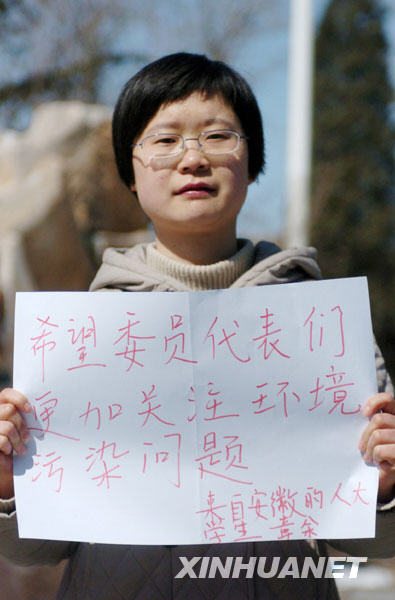 希望委员代表们
更加关注环境
污染问题
来自安徽的人大
学生 袁余
XINHUANET